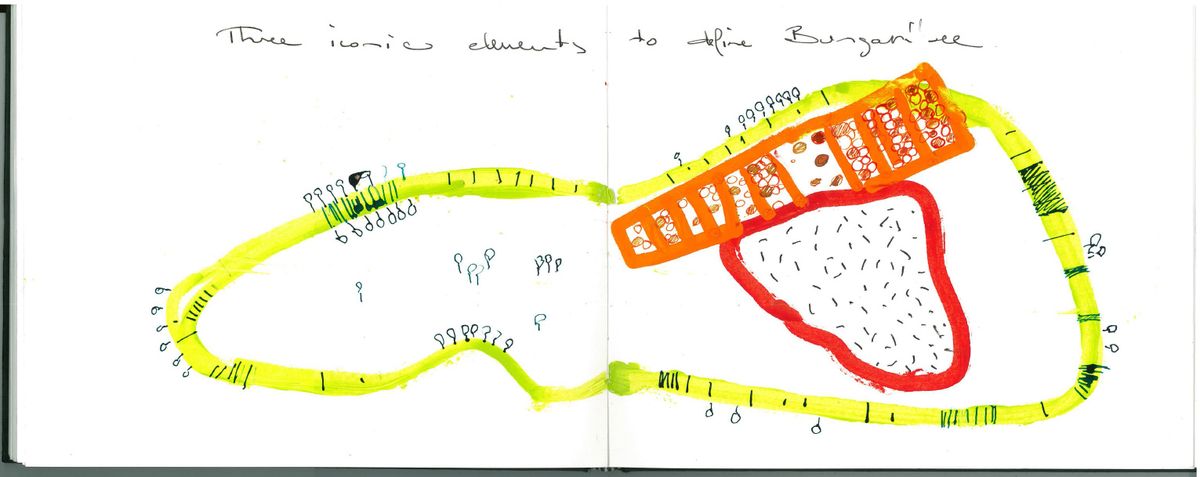 Three iconic elements to define Bungarribee